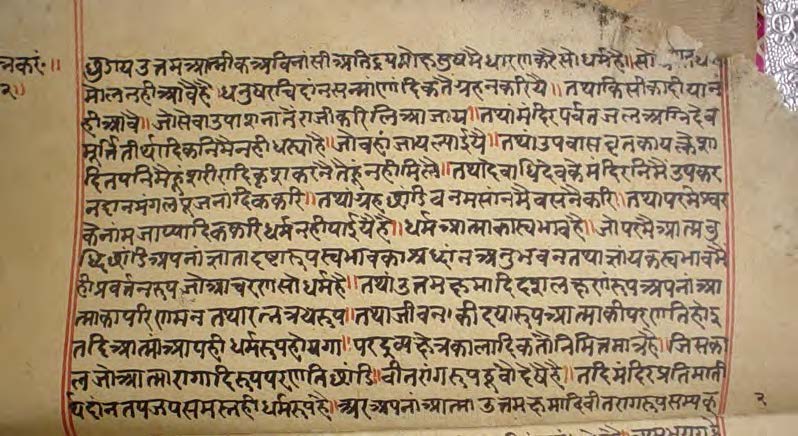 छुडाय उत्तम आत्मीक अविनांसी अतिंद्रय मोक्ष सुषमै धारण करै सो धर्म है॥ सो
मोल नही आवै है॥ धनुषरचि दांन सन्मांणादिकतै ग्रहन करियै॥ तथा किसी का दीया न
ही आवै॥ जो सेवा उपाशना तै राजी करि लिआ जाय॥ तथा मंदिर पर्वत जल अग्नि देव
मूर्त्ति तीर्थादिकनि मै नही धस्यो है॥ जो वहां जाय ल्याईयै॥ तथा उपवास वृत कायक्लेशा
दि तपनि मै हूं शरीरादि कृश करनै तै हूं न ही मिलै॥ तथा देवाधिदेव कै मंदिरनि मै उपकर
न दान मंगल पूजनांदिक करि॥ तथा ग्रह छांडि वन मसांन मै वसनै करि॥ तथा परमेश्वर
कै नांम जाप्पादिक करि धर्म नही पाईयै है॥ धर्म आत्मा का स्वभाव है॥ जो पर मै आत्म बु
धि छांडि अपनां ज्ञाता दृष्टा रूप स्वभाव का श्रद्धांन अनुभवन तथा ज्ञायक स्वभाव मै
ही प्रवर्तन रूप जो आचरण सो धर्म है॥ तथा उत्तम क्षमादि दशलक्षण रूप अपनां आ
त्मा का परिणमन तथा रत्नत्रय रूप॥ तथा जीवन की दया रूप आत्मा की परणति होइ
तदि आत्मा आपही धर्म रूप होयगा॥ परद्रव्य क्षेत्र कालादिक तौ निमित्त मात्र है॥ जिस का
ल जो आत्मा रागादि रूप परणति छांडि॥ वीतराग रूप हुवो देषै है॥ तदि मंदिर प्रतिमा ती
र्थ दांन तप जप समस्त ही धर्म रूप है॥ अर अपनां आत्मा उत्तम क्षमादि वीतराग रूप सम्यक्
२